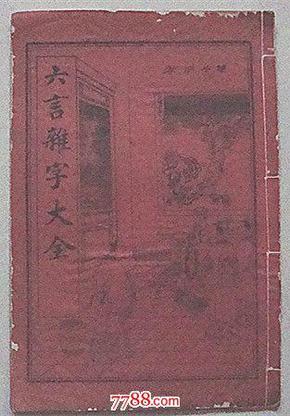 六言雜字大全
7788.com